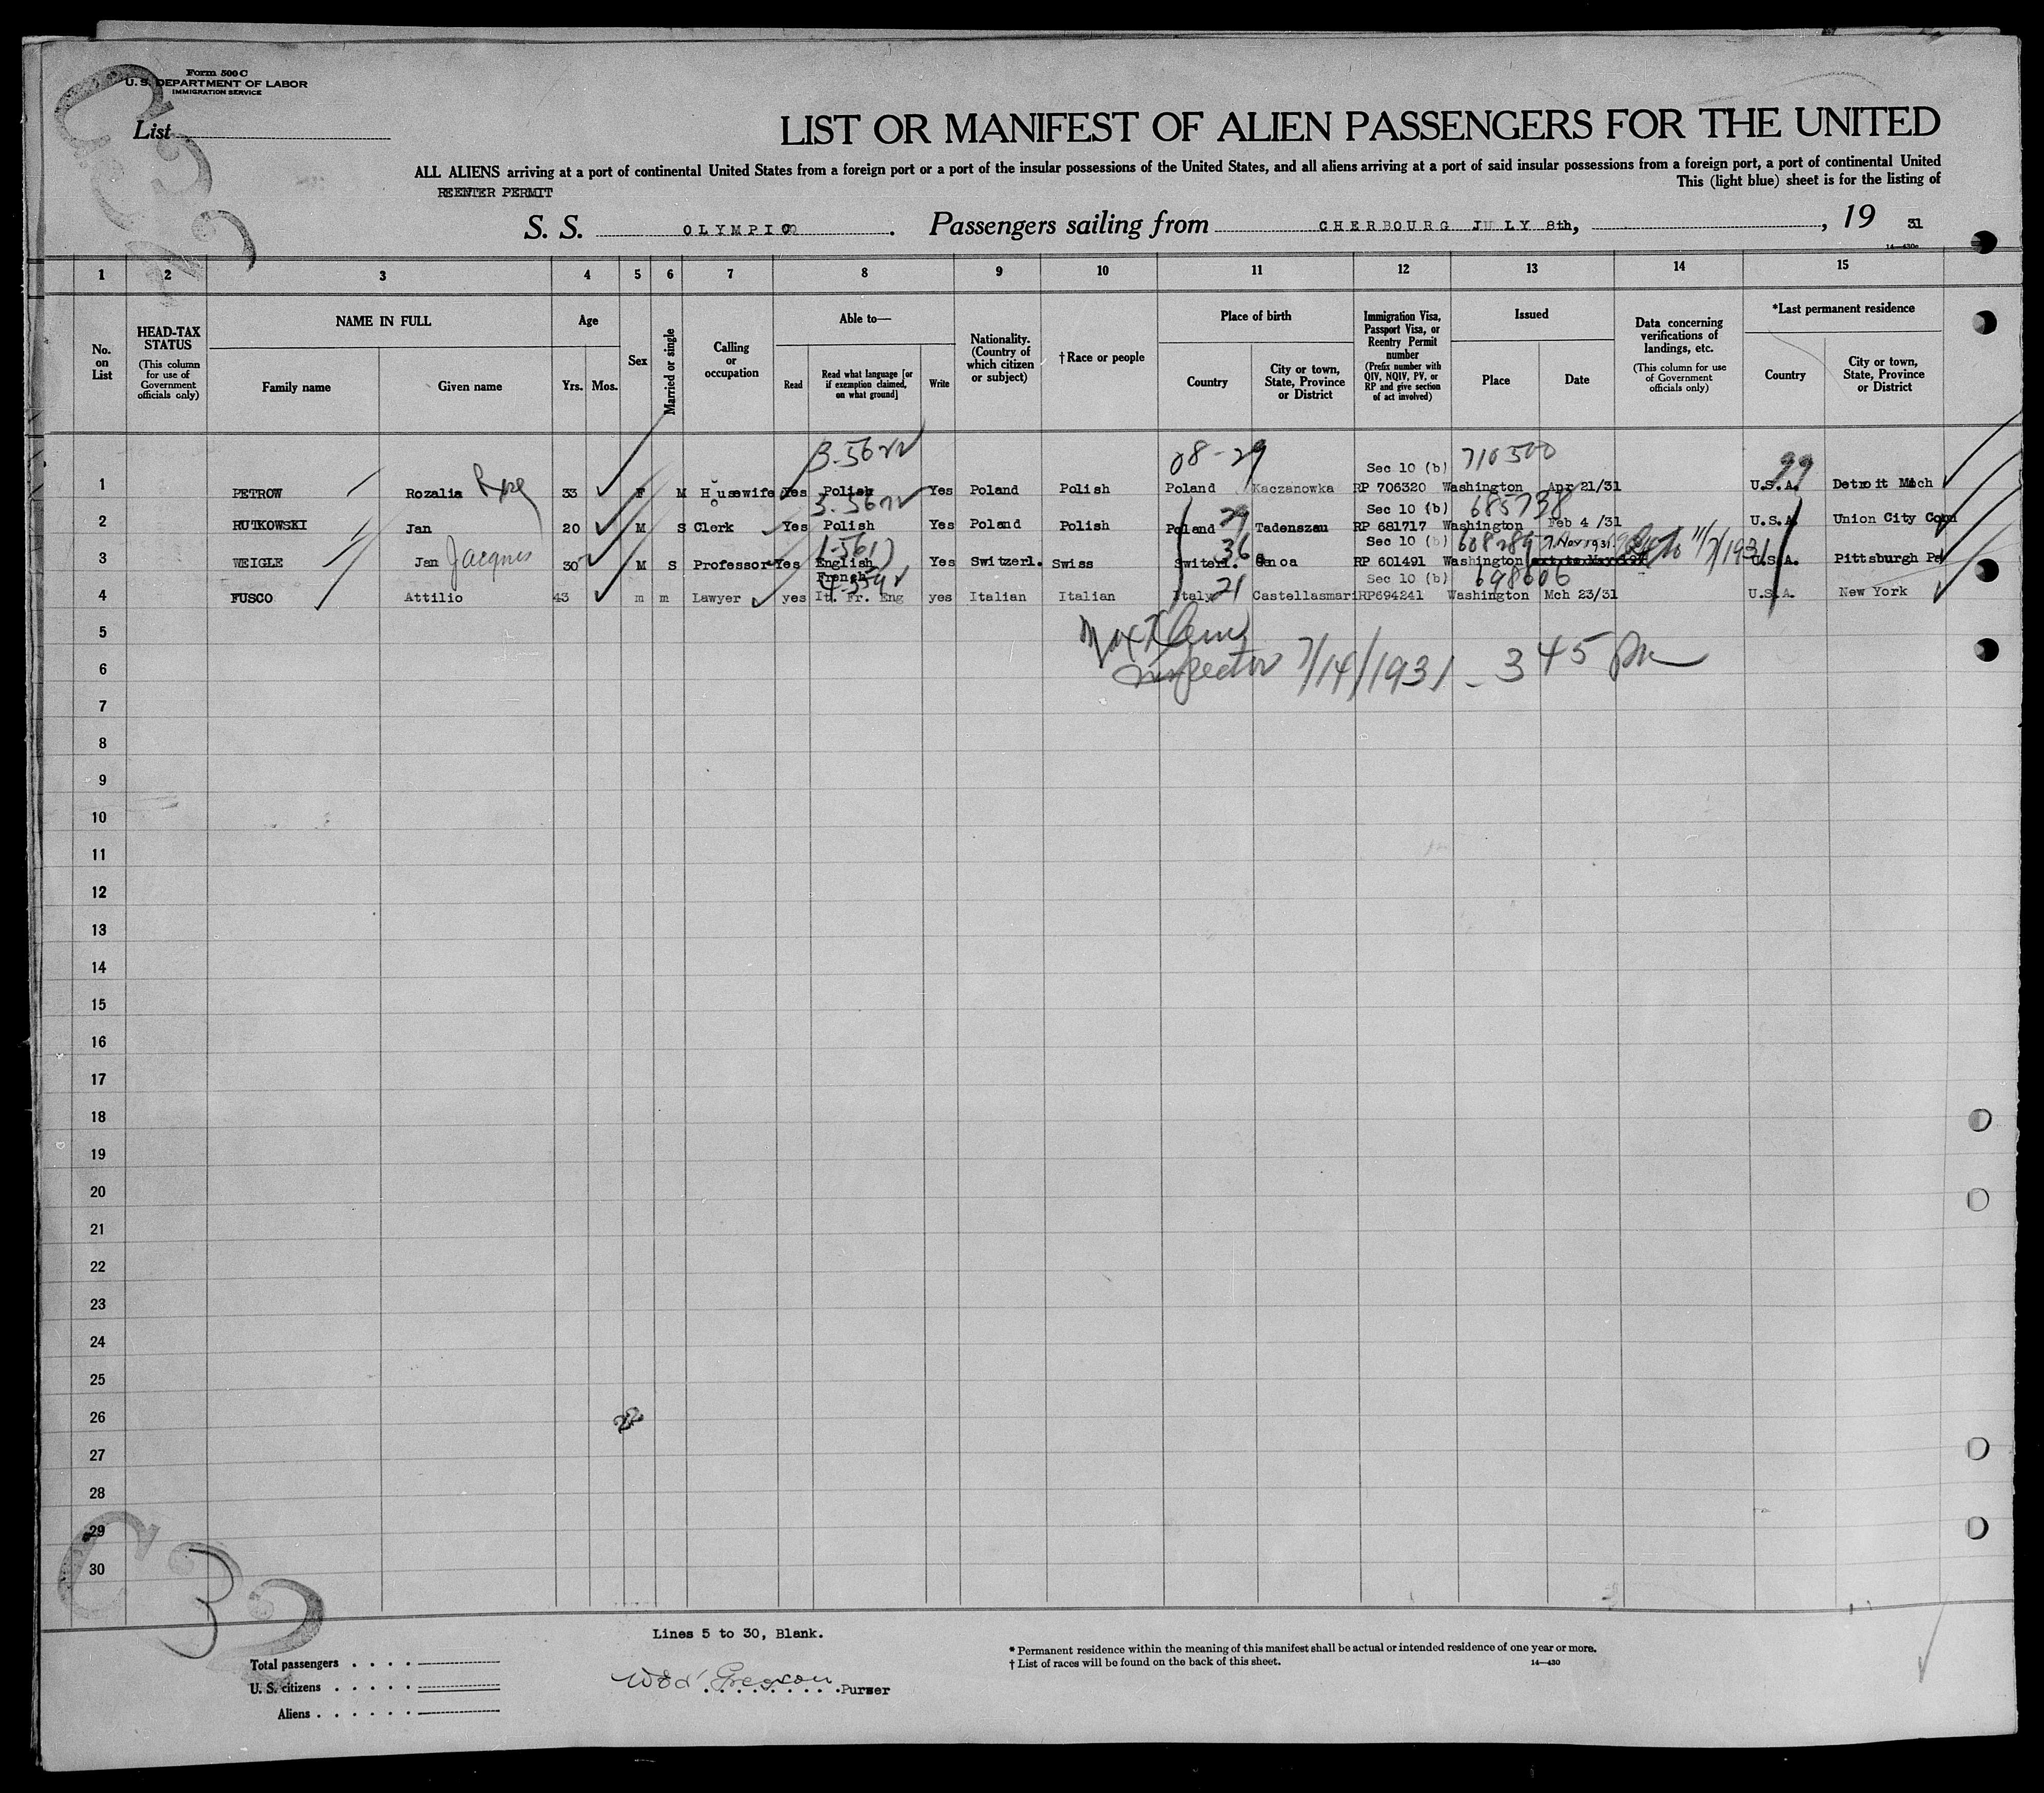 Form 500 C
U. S. DEPARTMENT OF LABOR
IMMIGRATION SERVICE
List
LIST OR MANIFEST OF ALIEN PASSENGERS FOR THE UNITED
ALL ALIENS arriving at a port of continental United States from a foreign port or a port of the insular possessions of the United States, and all aliens arriving at a port of said insular possessions from a foreign port, a port of continental United
REENTER PERMIT
This (light blue) sheet is for the listing of
S. S. OLYMPIC . Passengers sailing from CHERBOURG JULY 8th, , 19 31
14—430c
1 2 3 4 5 6 7 8 9 10 11 12 13 14 15
No. on List
HEAD-TAX STATUS (This column for use of Government officials only)
NAME IN FULL
Family name
Given name
Age
Yrs. Mos.
Sex
Married or single
Calling or occupation
Able to—
Read
Read what language [or if exemption claimed, on what ground]
Write
Nationality. (Country of which citizen or subject)
†Race or people
Place of birth
Country
City or town, State, Province or District
Immigration Visa, Passport Visa, or Reentry Permit number (Prefix number with QIV, NQIV, PV, or RP and give section of act involved)
Issued
Place
Date
Data concerning verifications of landings, etc. (This column for use of Government officials only)
*Last permanent residence
Country
City or town, State, Province or District
08-29 Sec 10 (b) 710500 99
1 PETROW Rozalia 33 F M Housewife Yes Polish Yes Poland Polish Poland Kaczanowka RP 706320 Washington Apr 21/31 U.S.A. Detroit Mich
29 Sec 10 (b) 685738
2 RUTKOWSKI Jan 20 M S Clerk Yes Polish Yes Poland Polish Poland Tadenszau RP 681717 Washington Feb 4 /31 U.S.A. Union City Conn
36 Sec 10 (b) 608289 7 Nov 1931 11/7/1931
3 WEIGLE Jan Jacques 30 M S Professor Yes English French Yes Switzerl. Swiss Switerl. Genoa RP 601491 Washington U.S.A. Pittsburgh Pa
21 Sec 10 (b) 698606
4 FUSCO Attilio 43 m m Lawyer yes It. Fr. Eng yes Italian Italian Italy Castellasmari RP694241 Washington Mch 23/31 U.S.A. New York
5
6 Inspector 7/14/1931 - 3 45 pm
7
8
9
10
11
12
13
14
15
16
17
18
19
20
21
22
23
24
25
26
27
28
29
30
C 32
Lines 5 to 30, Blank.
Total passengers
U. S. citizens
Aliens
Purser
* Permanent residence within the meaning of this manifest shall be actual or intended residence of one year or more.
† List of races will be found on the back of this sheet.
14—430